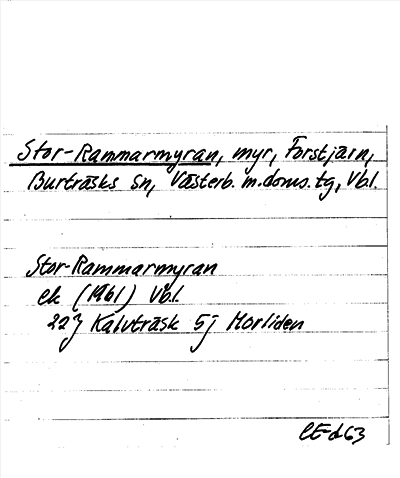 Stor-Rammarmyran, myr, Forstjärn,
Burträsks sn, Västerb. m. doms. tg, Vbl.
Stor-Rammarmyran
ek (1961) Vbl.
22J Kalvträsk 5j Morliden
CE-d 63